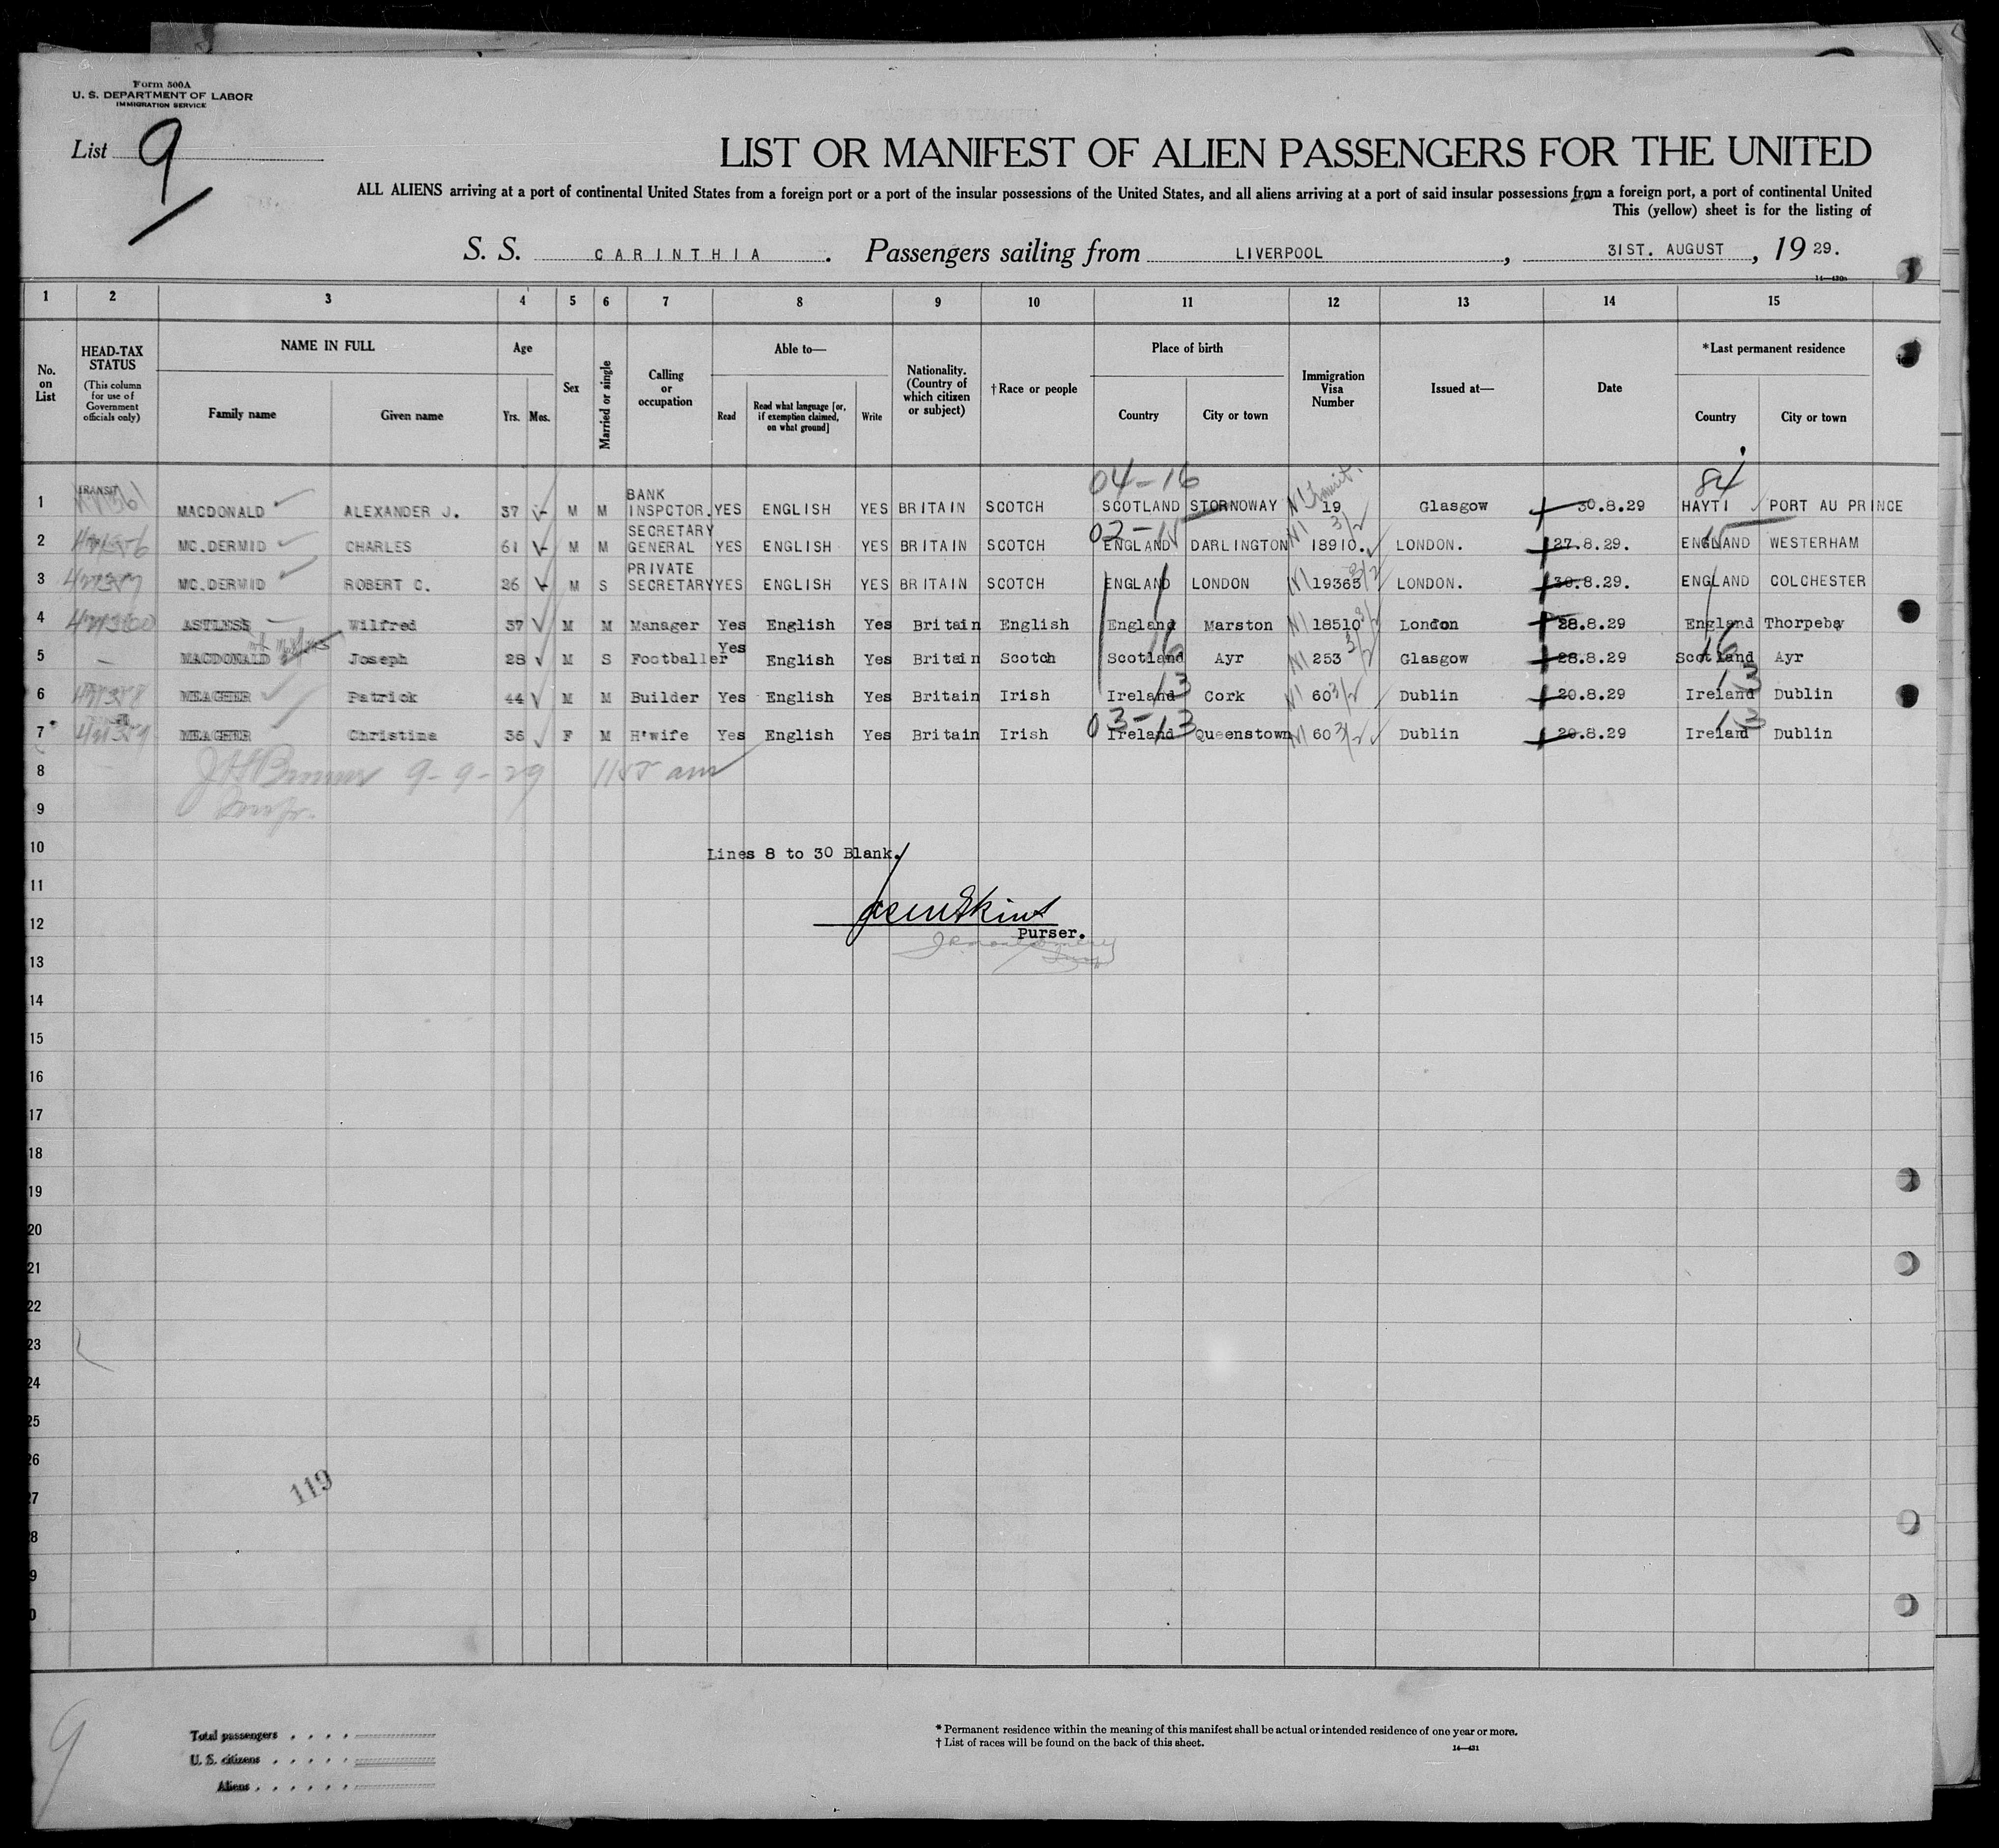 Form 500A
U. S. DEPARTMENT OF LABOR
IMMIGRATION SERVICE
List 9
LIST OR MANIFEST OF ALIEN PASSENGERS FOR THE UNITED
ALL ALIENS arriving at a port of continental United States from a foreign port or a port of the insular possessions of the United States, and all aliens arriving at a port of said insular possessions from a foreign port, a port of continental United
This (yellow) sheet is for the listing of
S. S. CARINTHIA. Passengers sailing from LIVERPOOL, 31ST. AUGUST, 19 29.
1 2 3 4 5 6 7 8 9 10 11 12 13 14 15
No. on List
HEAD-TAX STATUS (This column for use of Government officials only)
NAME IN FULL
Family name Given name
Age
Yrs. Mos.
Sex
Married or single
Calling or occupation
Able to—
Read Read what language [or, if exemption claimed, on what ground] Write
Nationality. (Country of which citizen or subject)
†Race or people
Place of birth
Country City or town
Immigration Visa Number
Issued at—
Date
*Last permanent residence
Country City or town
04-16 84
1 TRANSIT MACDONALD ALEXANDER J. 37 M M BANK INSPCTOR. YES ENGLISH YES BRITAIN SCOTCH SCOTLAND STORNOWAY 19 Glasgow 30.8.29 HAYTI PORT AU PRINCE
2 MC.DERMID CHARLES 61 M M SECRETARY GENERAL YES ENGLISH YES BRITAIN SCOTCH ENGLAND DARLINGTON 18910. LONDON. 27.8.29. ENGLAND WESTERHAM
3 MC.DERMID ROBERT C. 26 M S PRIVATE SECRETARY YES ENGLISH YES BRITAIN SCOTCH ENGLAND LONDON 19365 LONDON. 30.8.29. ENGLAND COLCHESTER
4 ASTLESS Wilfred 37 M M Manager Yes English Yes Britain English England Marston 18510 London 28.8.29 England Thorpeby
5 MACDONALD Joseph 28 M S Footballer Yes English Yes Britain Scotch Scotland Ayr 253 Glasgow 28.8.29 Scotland Ayr
6 MEAGHER Patrick 44 M M Builder Yes English Yes Britain Irish Ireland Cork 60 Dublin 20.8.29 Ireland Dublin
7 MEAGHER Christina 36 F M H'wife Yes English Yes Britain Irish Ireland Queenstown 60 Dublin 20.8.29 Ireland Dublin
8 9-9-29
9
10 Lines 8 to 30 Blank.
11
12 Purser.
13
14
15
16
17
18
19
20
21
22
23
24
25
26
27
28
29
30
119
9
Total passengers
U. S. citizens
Aliens
* Permanent residence within the meaning of this manifest shall be actual or intended residence of one year or more.
† List of races will be found on the back of this sheet.
14—431